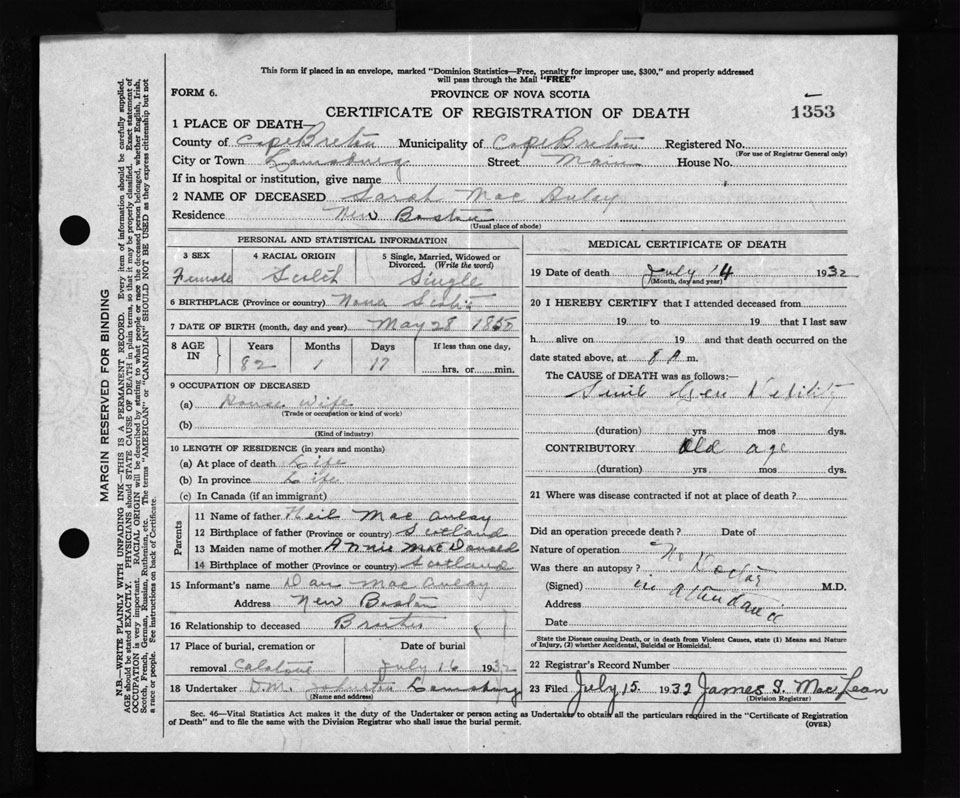 This form if placed in an envelope, marked "Dominion Statistics—Free, penalty for improper use, $300," and properly addressed
will pass through the Mail "FREE"
FORM 6.
PROVINCE OF NOVA SCOTIA
CERTIFICATE OF REGISTRATION OF DEATH
1353
1 PLACE OF DEATH—
County of Cape Breton Municipality of Cape Breton Registered No.
(For use of Registrar General only)
City or Town Street Main House No.
If in hospital or institution, give name
2 NAME OF DECEASED Sarah Mac Aulay
Residence New Boston
(Usual place of abode)
PERSONAL AND STATISTICAL INFORMATION
3 SEX 4 RACIAL ORIGIN 5 Single, Married, Widowed or
Divorced. (Write the word)
Female Scotch Single
6 BIRTHPLACE (Province or country) Nova Scotia
7 DATE OF BIRTH (month, day and year) May 28 1850
8 AGE IN Years Months Days If less than one day,
82 1 17 hrs. or min.
9 OCCUPATION OF DECEASED
(a) House Wife
(Trade or occupation or kind of work)
(b)
(Kind of industry)
10 LENGTH OF RESIDENCE (in years and months)
(a) At place of death Life
(b) In province Life
(c) In Canada (if an immigrant)
Parents
11 Name of father Neil Mac Aulay
12 Birthplace of father (Province or country) Scotland
13 Maiden name of mother Annie MacDonald
14 Birthplace of mother (Province or country) Scotland
15 Informant's name Dan Mac Aulay
Address New Boston
16 Relationship to deceased
17 Place of burial, cremation or Date of burial
removal July 16 1932
18 Undertaker D.M. Johnston
(Name and address)
MEDICAL CERTIFICATE OF DEATH
19 Date of death July 14 1932
(Month, day and year)
20 I HEREBY CERTIFY that I attended deceased from
19 to 19 that I last saw
h alive on 19 and that death occurred on the
date stated above, at 8 A m.
The CAUSE of DEATH was as follows:—
(duration) yrs mos dys.
CONTRIBUTORY Old age
(duration) yrs mos dys.
21 Where was disease contracted if not at place of death?
Did an operation precede death? Date of
Nature of operation
Was there an autopsy? No Doctor
(Signed) in attendance M.D.
Address
Date
State the Disease causing Death, or in death from Violent Causes, state (1) Means and Nature
of Injury, (2) whether Accidental, Suicidal or Homicidal.
22 Registrar's Record Number
23 Filed July 15 1932 James MacLean
(Division Registrar)
Sec. 46—Vital Statistics Act makes it the duty of the Undertaker or person acting as Undertaker to obtain all the particulars required in the "Certificate of Registration
of Death" and to file the same with the Division Registrar who shall issue the burial permit.
(OVER)
MARGIN RESERVED FOR BINDING
N.B.—WRITE PLAINLY WITH UNFADING INK—THIS IS A PERMANENT RECORD. Every item of information should be carefully supplied.
AGE should be stated EXACTLY. PHYSICIANS should STATE CAUSE OF DEATH in plain terms, so that it may be properly classified. Exact statement of
OCCUPATION is very important. RACIAL ORIGIN will be described by stating to what people or race the deceased person belonged, whether English, Irish,
Scotch, French, German, Russian, Ruthenian, etc. The terms "AMERICAN" or "CANADIAN" SHOULD NOT BE USED as they express citizenship but not
a race or people. See instructions on back of Certificate.